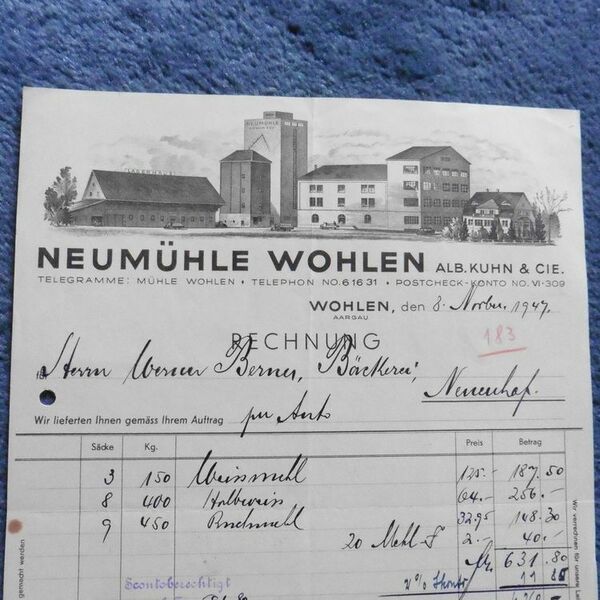 NEUMÜHLE
LAGERHAUS
NEUMÜHLE WOHLEN ALB. KUHN & CIE.
TELEGRAMME: MÜHLE WOHLEN • TELEPHON NO. 6 16 31 • POSTCHECK-KONTO NO. VI-309
WOHLEN, den 8. Novbr. 1947.
AARGAU
183
RECHNUNG
Herrn Werner Berner, Bäckerei,
Neuenhof.
Wir lieferten Ihnen gemäss Ihrem Auftrag per Auto
Säcke Kg. Preis Betrag
3 150 Weissmehl 125.- 187.50
8 400 Halbweiss 64.- 256.-
9 450 Ruchmehl 32.95 148.30
20 Mehl-S 2.- 40.-
Fr. 631.80
Scontoberechtigt 2% Skonto 11 85
gemacht werden
Wir verrechnen für unsere